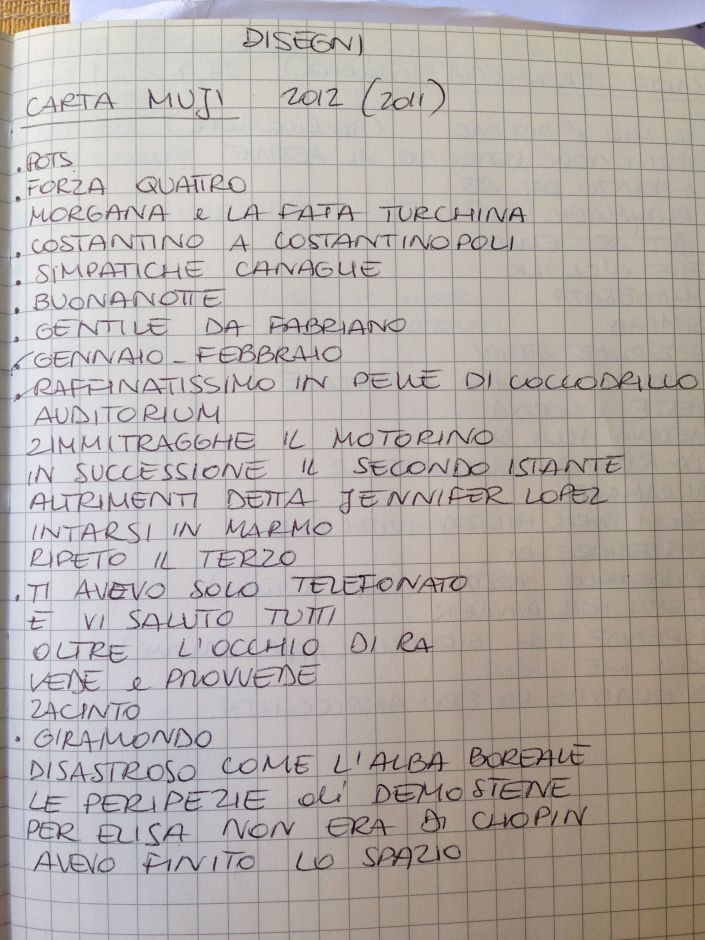 DISEGNI
CARTA MUJI 2012 (2011)
. POTS
. FORZA QUATTRO
MORGANA e LA FATA TURCHINA
. COSTANTINO A COSTANTINOPOLI
. SIMPATICHE CANAGLIE
. BUONANOTTE
. GENTILE DA FABRIANO
GENNAIO - FEBBRAIO
. RAFFINATISSIMO IN PELLE DI COCCODRILLO
AUDITORIUM
ZIMMITRAGGHE IL MOTORINO
IN SUCCESSIONE IL SECONDO ISTANTE
ALTRIMENTI DETTA JENNIFER LOPEZ
INTARSI IN MARMO
RIPETO IL TERZO
. TI AVEVO SOLO TELEFONATO
E VI SALUTO TUTTI
OLTRE L'OCCHIO DI RA
VEDE e PROVVEDE
ZACINTO
. GIRAMONDO
DISASTROSO COME L'ALBA BOREALE
LE PERIPEZIE di DEMOSTENE
PER ELISA NON ERA DI CHOPIN
AVEVO FINITO LO SPAZIO